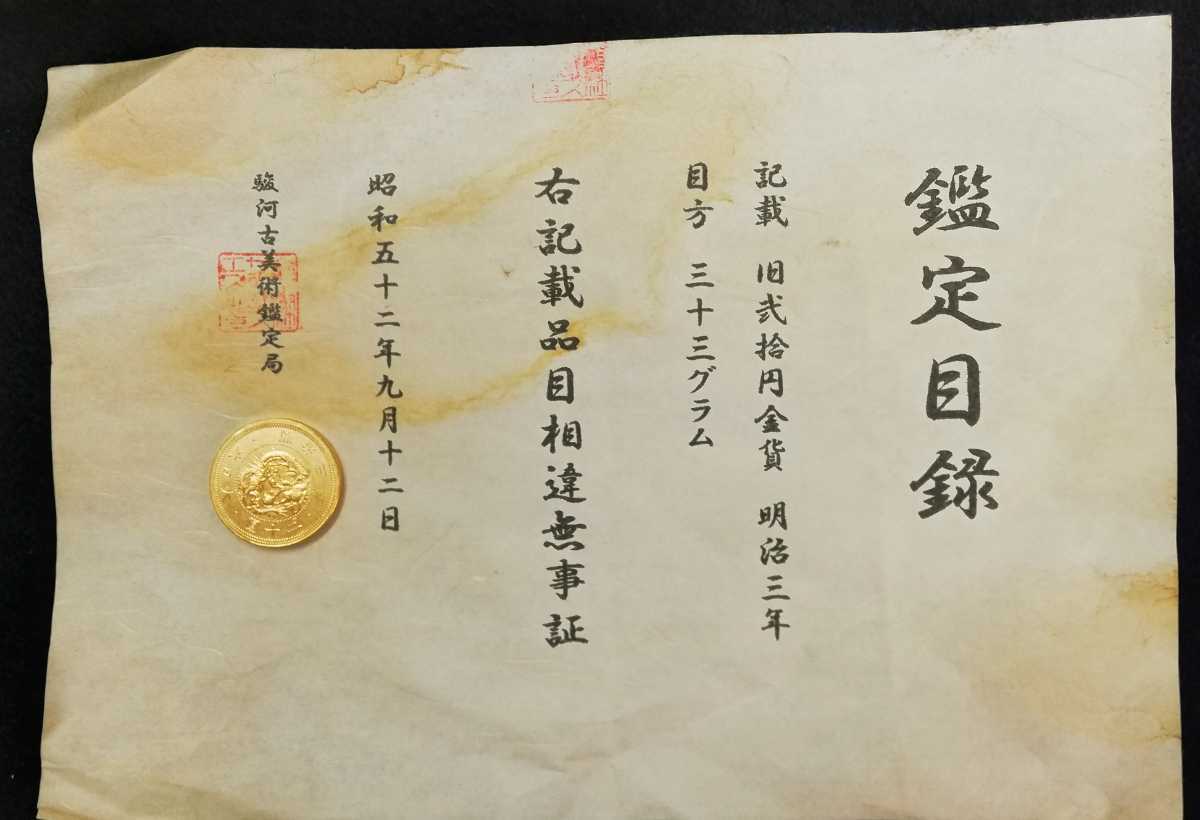 鑑定目録
記載　旧弐拾円金貨　明治三年
目方　三十三グラム
右記載品目相違無事証
昭和五十二年九月十二日
駿河古美術鑑定局